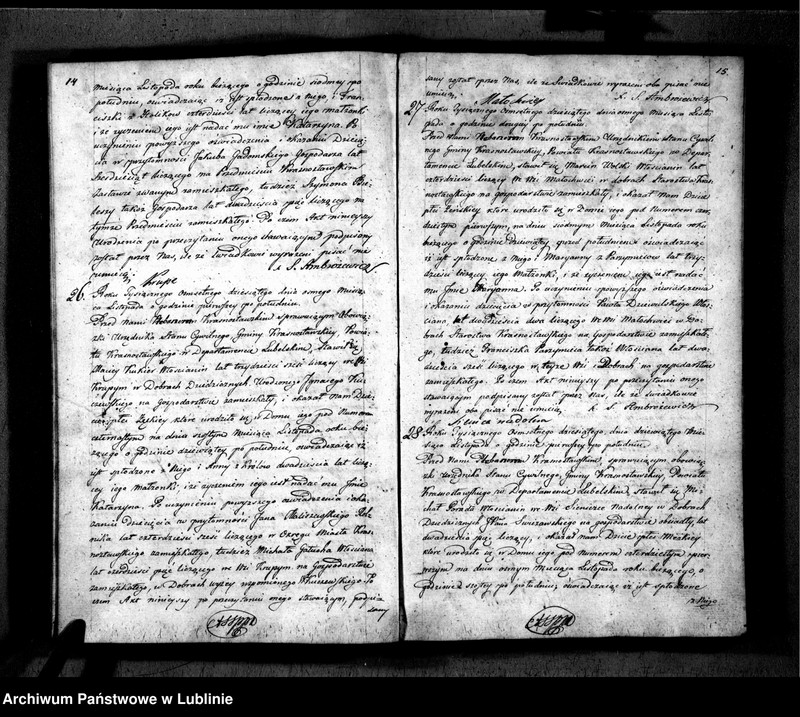 14
miesiąca Listopada roku bieżącego o godzinie siodmey po
południu, oswiadczaiąc iż iest spłodzona z niego i Fran-
ciszki z czterdzieści lat liczącey iego małżonki
i że życzeniem iego iest nadać mu imie Katarzyna. Po
uczynieniu powyższego oswiadczenia i okazaniu Dziecię-
cia w przytomności Jakuba Gadomskiego Gospodarza lat
liczącego na Przedmieściu Krasnostawskim
Zastawie zwanym zamieszkałego, tudzież Szymona
także Gospodarza lat dwadzieścia pięć liczącego na
tymże Przedmieściu zamieszkałego. Po czem Akt ninieyszy
Urodzenia po przeczytaniu onego stawaiącym podpisany
został przez Nas, ile że świadkowie wyrażeni pisać nie
umieią.
X. S. Ambrożewicz
Krupe
26. Roku Tysiącznego Osmsetnego dziesiątego dnia osmego Miesią-
ca Listopada o godzinie pierwszey po południu.
Przed Nami Plebanem Krasnostawskim sprawuiącym Obowią-
zki Urzędnika Stanu Cywilnego Gminy Krasnostawskiey, Powia-
tu Krasnostawskiego w Departamencie Lubelskim, stawił się
Maciey Kukier Włościanin lat trzydzieści sześć liczący we Wsi
Krupym w Dobrach Dziedzicznych Urodzonego Ignacego
na Gospodarstwie zamieszkały, i okazał Nam Dzie-
cię płci Żeńskiey które urodziło się w Domu iego pod Numerem
czternastym na dniu siódmym Miesiąca Listopada roku bież-
ącego o godzinie dziewiątey po południu, oswiadczaiąc iż
iest spłodzone z Niego i Anny z Królow dwadzieścia lat liczą-
cey iego Małżonki; i że życzeniem iego iest nadać mu Imie
Katarzyna. Po uczynieniu powyższego oswiadczenia i oka-
zaniu Dziecięcia w przytomności Jana Rol-
nika lat czterdzieści sześć liczącego w Okręgu Miasta Kras-
nostawskiego zamieszkałego, tudzież Michała Włościana
lat czterdzieści pięć liczącego we Wsi Krupym na Gospodarstwie
zamieszkałego, w Dobrach wyżey wspomnionego Po
czem Akt ninieyszy po przeczytaniu onego stawaiącym, podpi-
sany
15.
sany został przez Nas, ile że świadkowie wyrażeni oba pisać nie
umieią.
X. S. Ambrożewicz
27. Roku Tysiącznego Osmsetnego dziesiątego dnia osmego Miesiąca Listo-
pada o godzinie drugiey po południu.
Przed Nami Plebanem Krasnostawskim Urzędnikiem Stanu Cywil-
nego Gminy Krasnostawskiey, Powiatu Krasnostawskiego w Depar-
tamencie Lubelskim, stawił się Marcin Wolski Włościanin lat
czterdzieści liczący we Wsi w Dobrach Starostwa Kras-
nostawskiego na gospodarstwie zamieszkały, i okazał Nam Dzie-
cię płci Żeńskiey które urodziło się w Domu iego pod Numerem czter-
dziestym pierwszym, na dniu siodmym Miesiąca Listopada roku
bieżącego o godzinie dziewiątey przed południem oswiadczaiąc
iż iest spłodzone z Niego i Maryanny z lat trzy-
dzieści liczącey iego Małżonki, i że życzeniem iego iest nadać
mu Imie Maryanna. Po uczynieniu powyższego oswiadczenia
i okazaniu dziecięcia w przytomności Włoś-
ciana, lat dwa liczącego we Wsi w Do-
brach Starostwa Krasnostawskiego na Gospodarstwie zamieszkałe-
go, tudzież Franciszka także Włościana lat dwa-
dzieścia sześć liczącego w teyże Wsi i Dobrach na gospodarstwie
zamieszkałego. Po czem Akt ninieyszy po przeczytaniu onego
stawaiącym podpisany został przez Nas, ile że świadkowie
wyrażeni oba pisać nie umieią. X. S. Ambrożewicz
Siennica nadolna
28. Roku Tysiącznego Osmsetnego dziesiątego, dnia dziewiątego Mie-
siąca Listopada o godzinie pierwszey po południu.
Przed Nami Plebanem Krasnostawskim, sprawuiącym obowią-
zki Urzędnika Stanu Cywilnego Gminy Krasnostawskiey, Powiatu
Krasnostawskiego w Departamencie Lubelskim, stawił się Mi-
chał Włościanin we Wsi Siennicy Nadolney w Dobrach
Dziedzicznych na gospodarstwie osiadły, lat
dwadzieścia pięć liczący, i okazał nam Dziecię płci Męzkiey
które urodziło się w Domu iego pod Numerem czterdziestym pier-
wszym na dniu osmym Miesiąca Listopada roku bieżącego, o
godzinie szostey po południu, oswiadczaiąc iż iest spłodzone
z Niego
Archiwum Państwowe w Lublinie